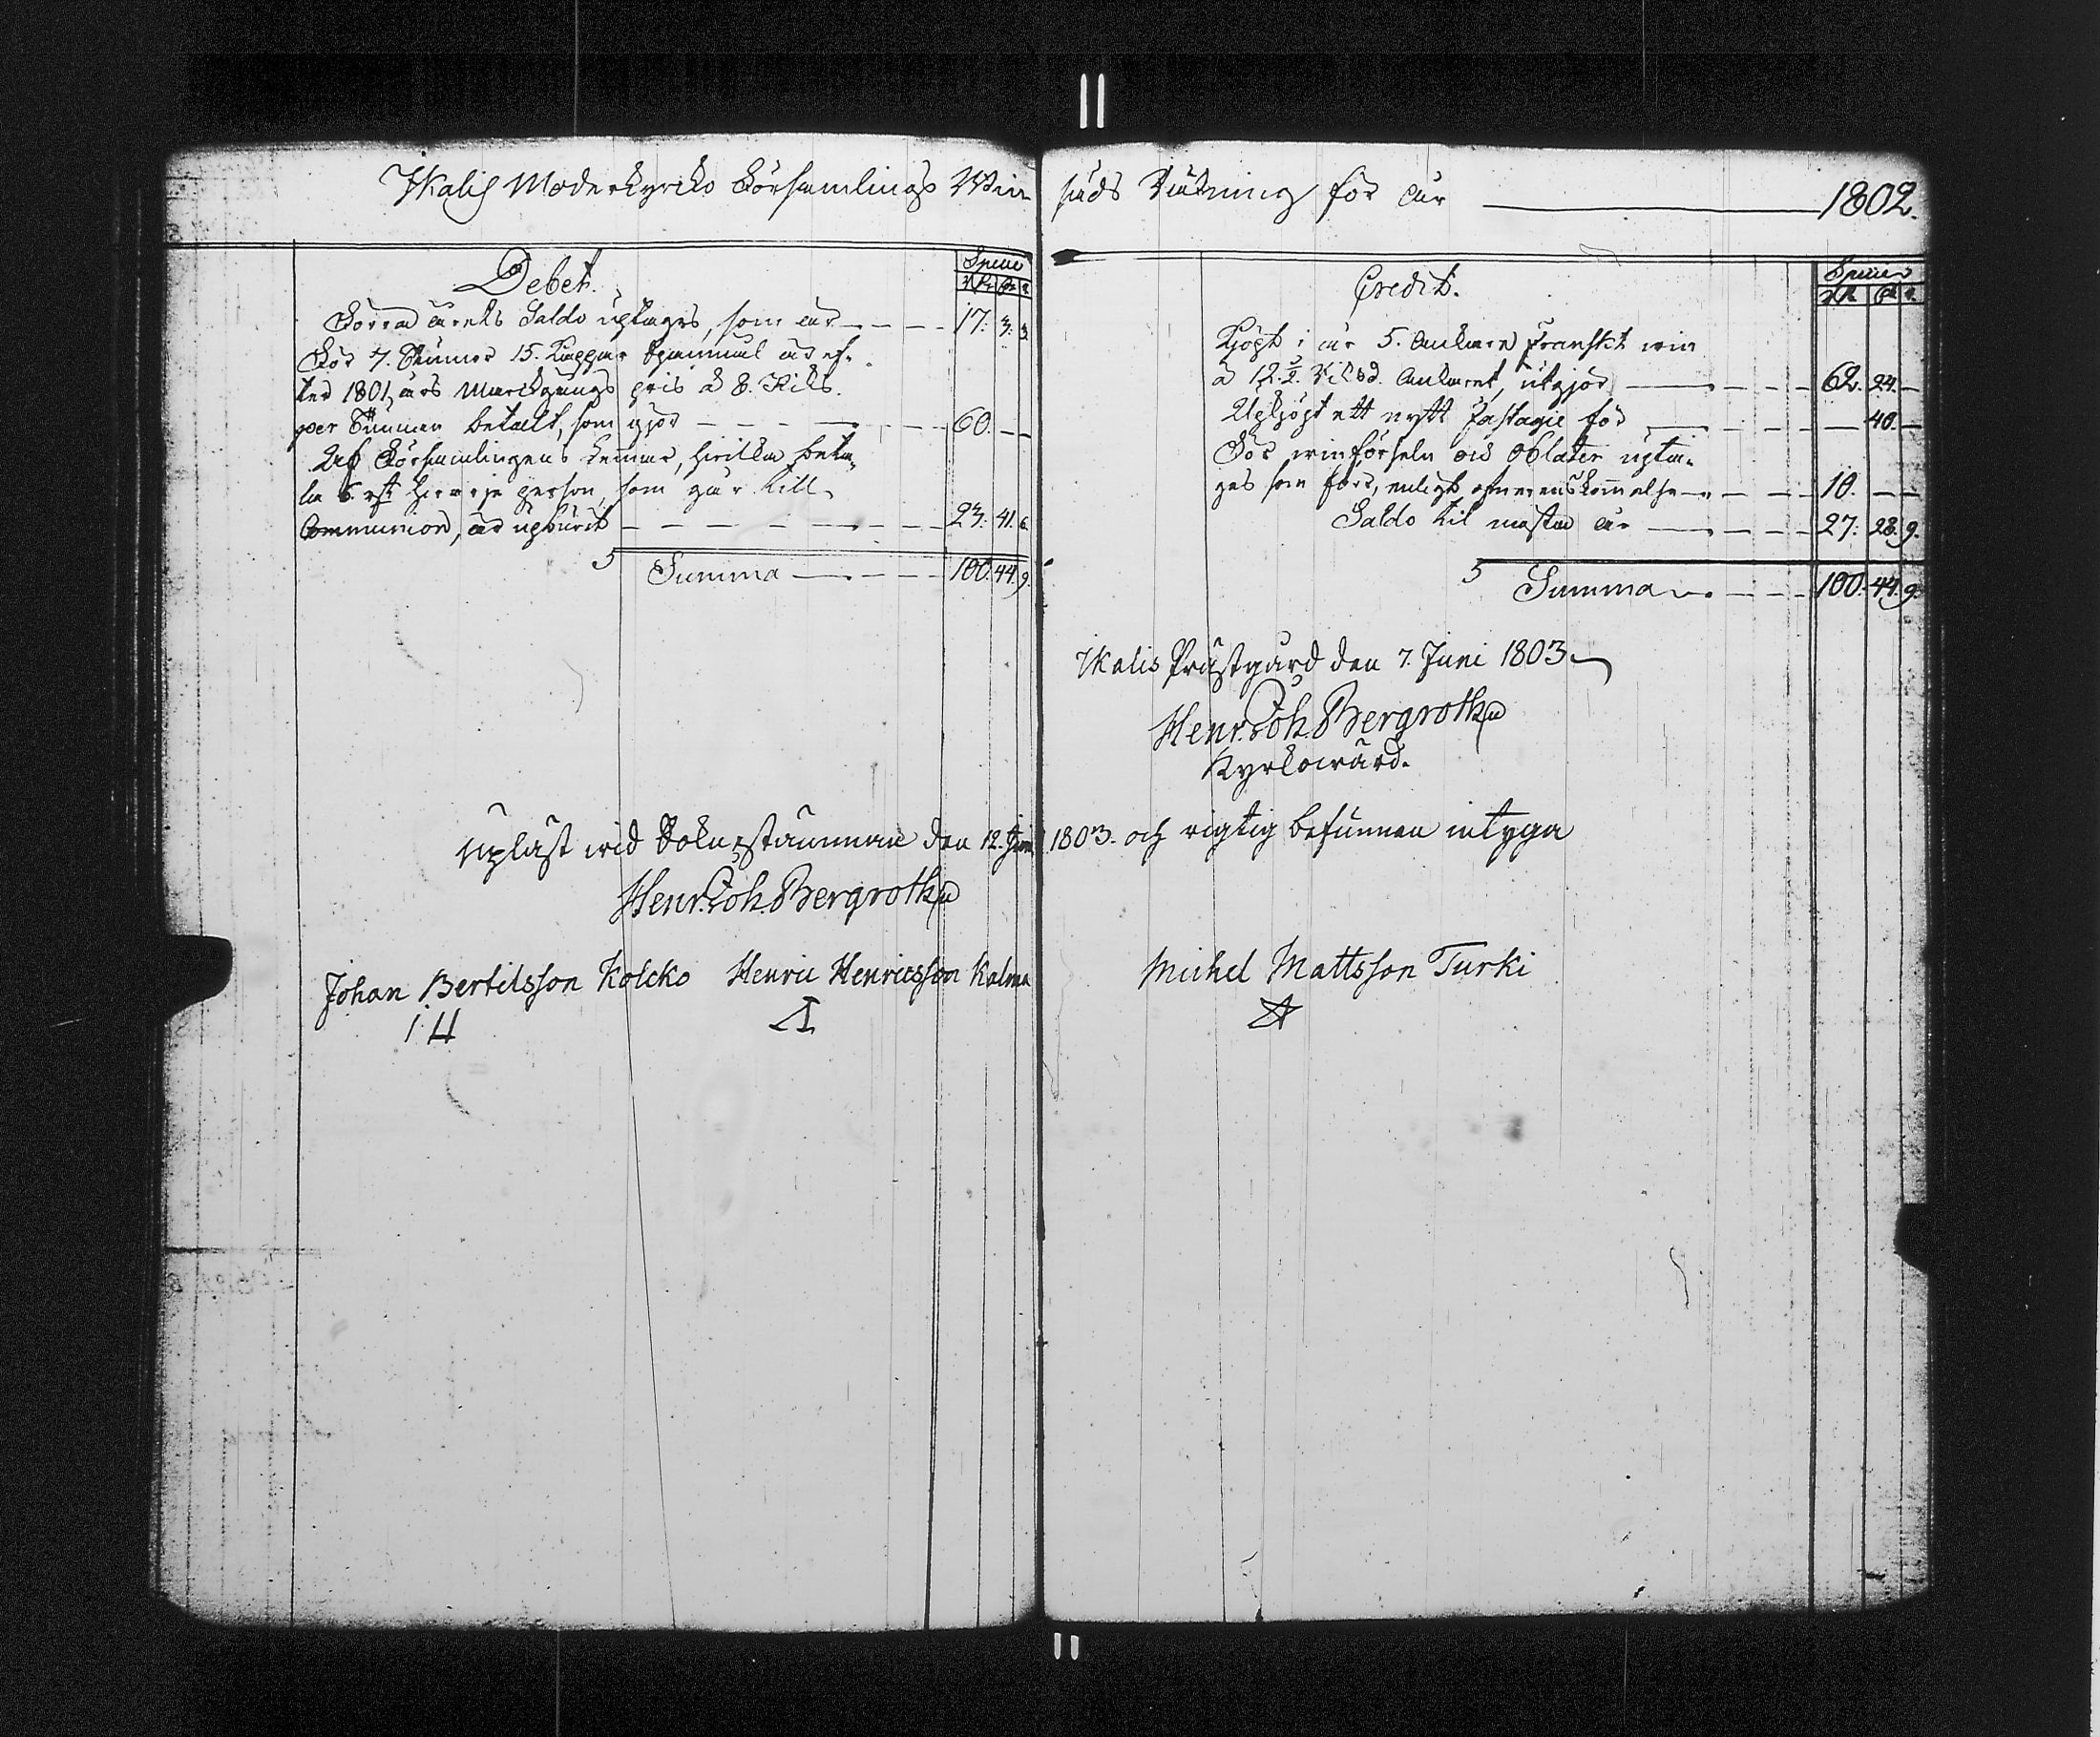 Ikalis Moderkyrko Församlings Win
säds Räkning för år 1802.
Debet.
Specie
Rd ß r
Förra årets Saldo uptages, som är 17. 3. 3.
För 7. Tunnor 15. Kappar Spanmål är ef-
ter 1801 års Markgångs pris à 8. Riks.
per Tunnan betalt, som gjör 60. — —
Af Församlingens hemmar, hvilka beta-
la 6. rst. hvarje person, som går till
Communion, är upburit 23. 41. 6.
Summa 100. 44. 9.
Credit.
Specie
Rd ß r
Kjöpt i år 5. Ankare Franskt win
à 12. ½. Riksd. Ankaret, utgjör 62. 24. —
Upkjöpt ett nytt Fastagie för — 40. —
För winförseln och Oblater upta-
ges som förr, enligt öfverenskommelse 10. — —
Saldo til nästa år 27. 28. 9.
Summa 100. 44. 9.
Ikalis Prästgård den 7. Juni 1803
Henr. Joh. Bergroth
Kyrkowärd.
Upläst wid Soknestämman den 12. Juni 1803. och rigtig befunnen intyga
Henr. Joh. Bergroth
Johan Bertilsson Kolcko Henric Henricsson Kalma Michel Mattsson Turki